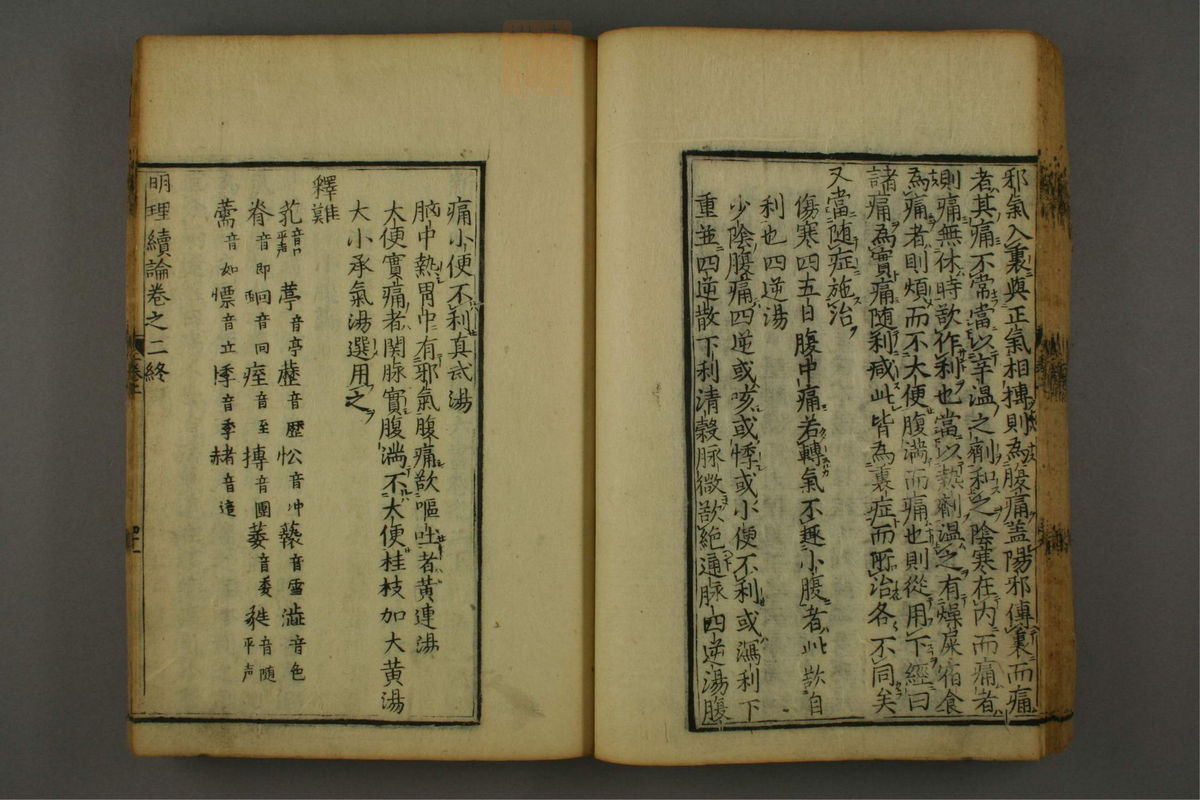 邪氣入裏與正氣相摶則為腹痛盖陽邪傳裏而痛
者其痛不常當以辛温之劑和之陰寒在内而痛者
則痛無休時欲作利也當以熱劑温之有燥屎宿食
為痛者則煩而不大便腹満而痛也則從用下經曰
諸痛為實痛随利减此皆為裏症而所治各不同矣
又當随症施治
傷寒四五日腹中痛若轉氣下趣小腹者此欲自
利也四逆湯
少陰腹痛四逆或咳或悸或小便不利或瀉利下
重並四逆散下利清穀脉微欲絶通脉四逆湯腹
痛小便不利真武湯
胸中熱胃中有邪氣腹痛欲嘔吐者黄連湯
太便實痛者関脉實腹満不大便桂枝加大黄湯
大小承氣湯選用之
釋難
芤音口平声 葶音亭 藶音歷 忪音冲 音雪 澁音色
脊音即 音同 痓音至 摶音團 萎音委 音随平声
薷音如 慓音立 悸音季 赭音這
明理續論卷之二終